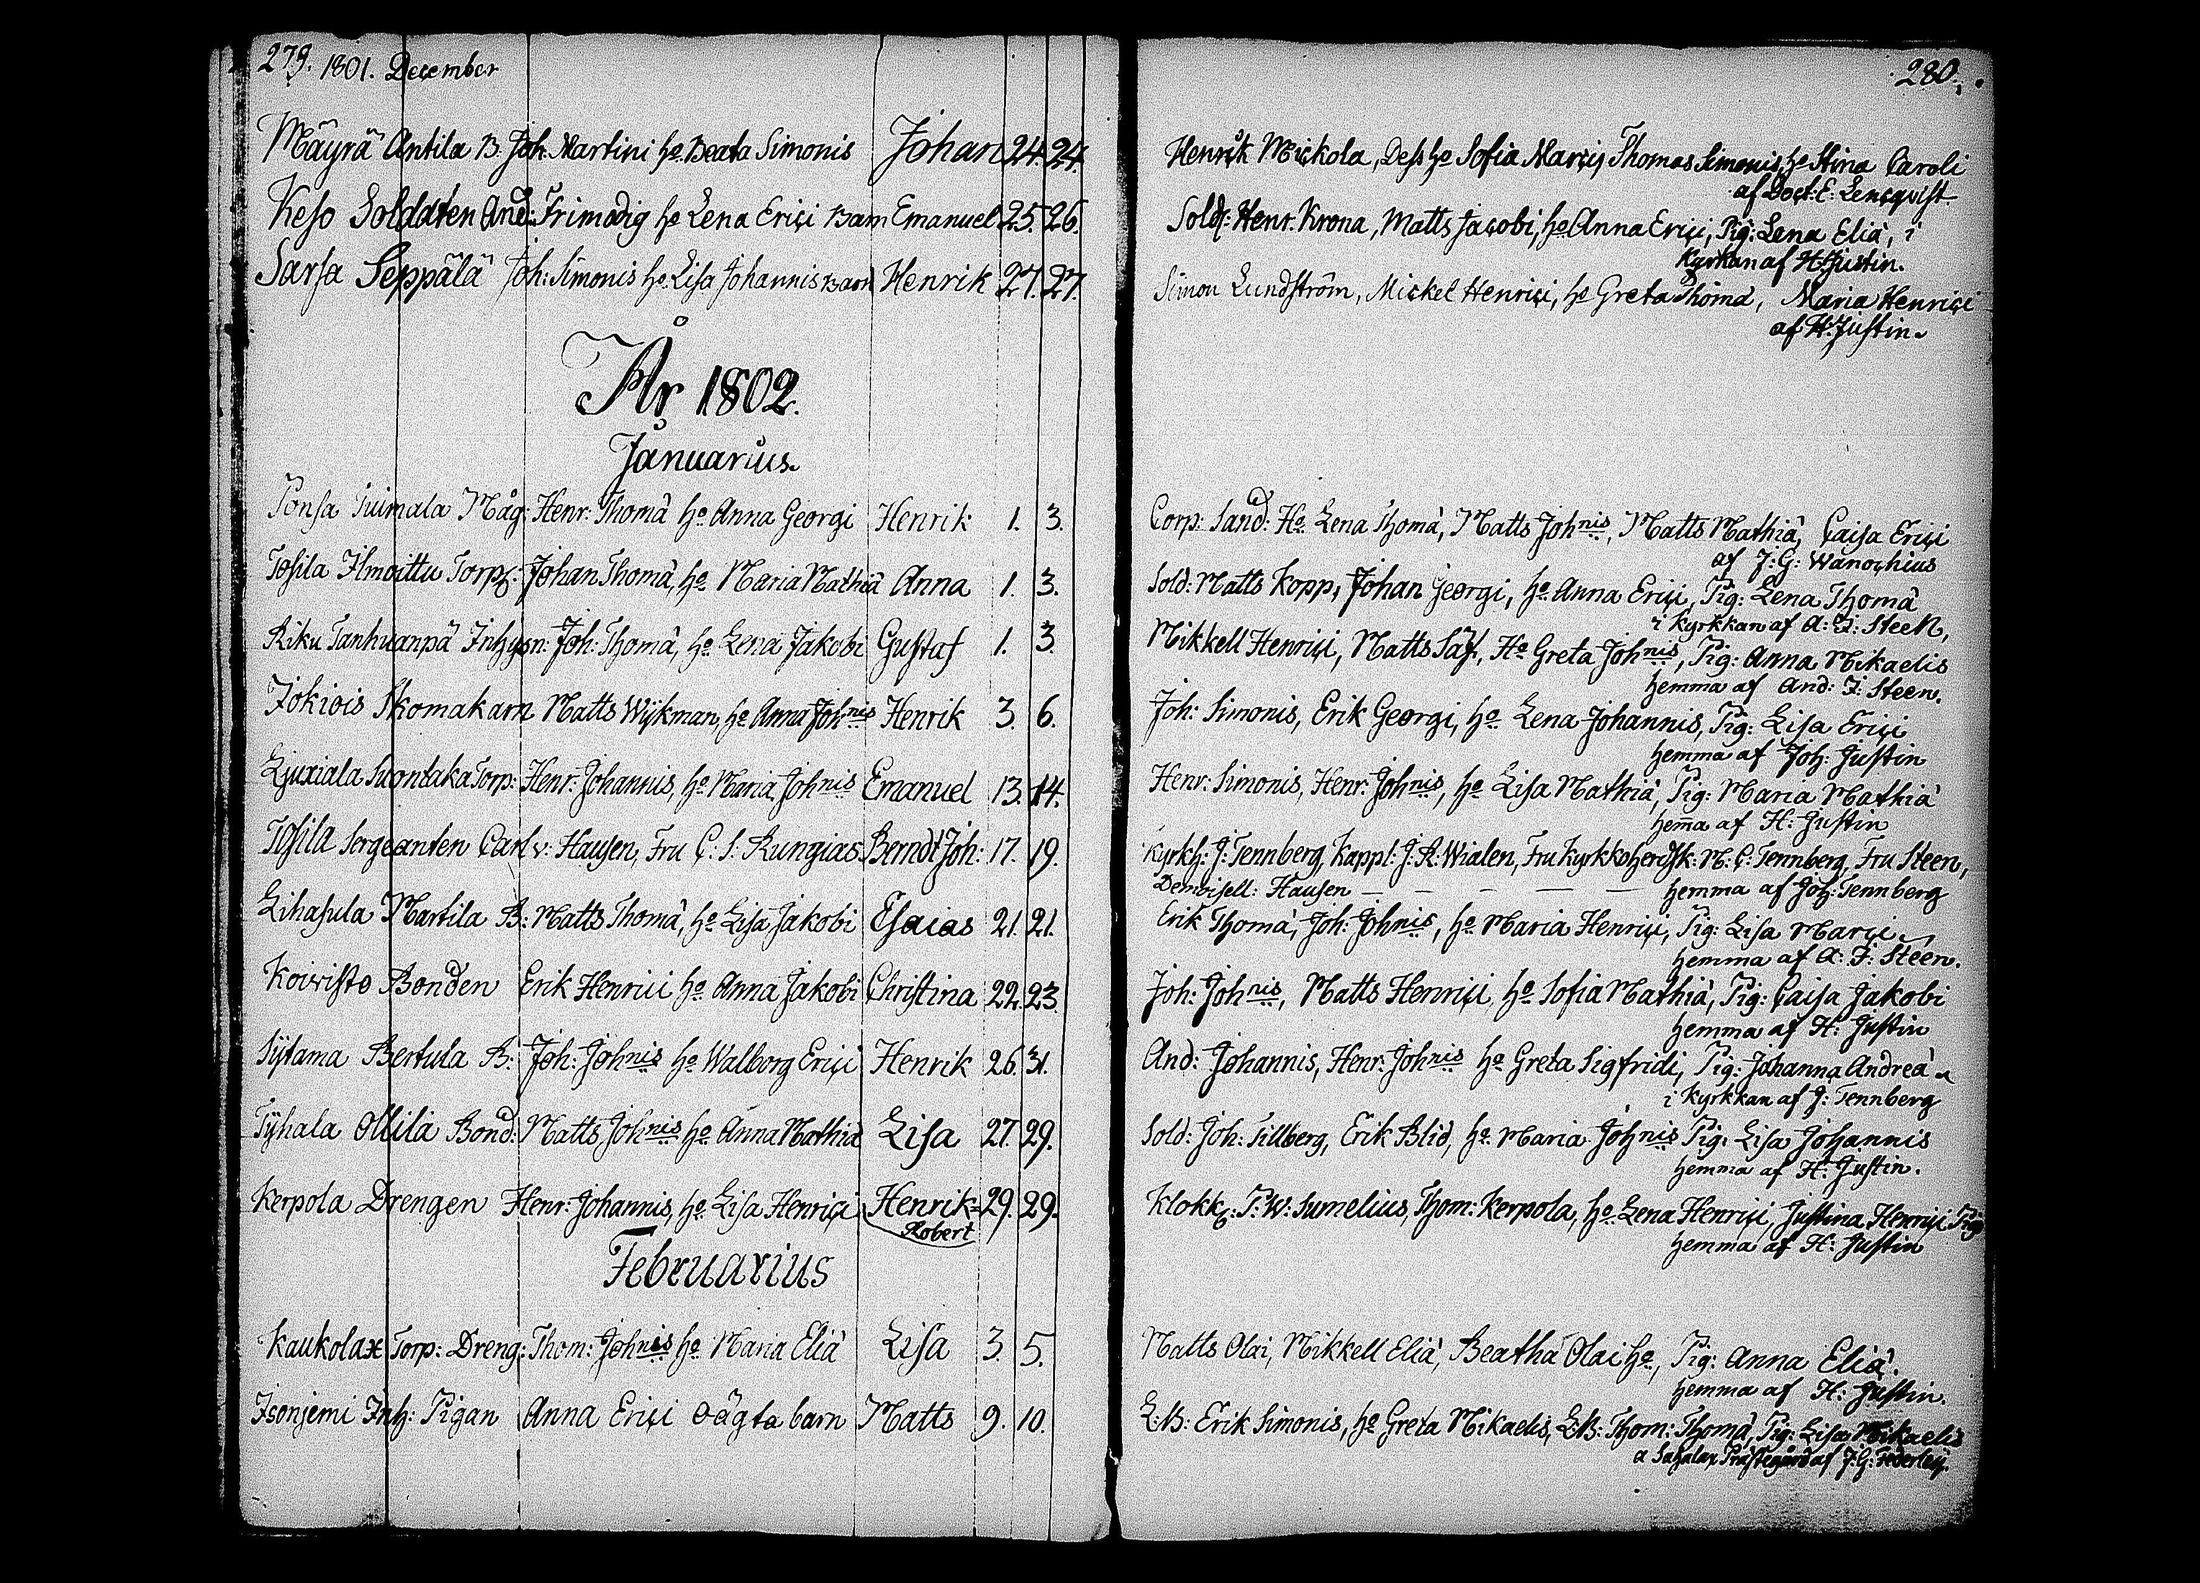 279. 1801. December
Mäyrä Antila B. Joh: Martini ho Beata Simonis Johan 24. 24.
Keso Soldaten And: Frimodig ho Lena Erici Barn Emanuel 25. 26.
Sarsa Seppälä Joh: Simonis ho Lisa Johannis Barn Henrik 27. 27.
År 1802.
Januarius.
Ponsa Måg: Henr: Thomæ ho Anna Georgi Henrik 1. 3.
Tosila Ilmoittu Torp: Johan Thomæ, ho Maria Mathiæ Anna 1. 3.
Riku Tanhuanpä Inhysn: Joh: Thomæ, ho Lena Jakobi Gustaf 1. 3.
Jokiois Skomakarn Matts Wijkman, ho Anna Johnis Henrik 3. 6.
Ljuxiala Suontaka Torp: Henr: Johannis, ho Maria Johnis Emanuel 13. 14.
Tosila Sergeanten Carl v: Hausen, Fru C. S. Rungias Berndt Joh: 17. 19.
Lihasula Martila B: Matts Thomæ, ho Lisa Jakobi Esaias 21. 21.
Koivisto Bonden Erik Henrici ho Anna Jakobi Christina 22. 23.
Sytama Bertula B: Joh: Johnis ho Walborg Erici Henrik 26. 31.
Tyhala Ollila Bond: Matts Johnis ho Anna Mathiæ Lisa 27. 29.
Kerpola Drengen Henr: Johannis, ho Lisa Henrici Henrik= 29. 29.
Robert
Februarius
Kaukolax Torp: Dreng: Thom: Johnis ho Maria Eliæ Lisa 3. 5.
Isonjemi Inh: Pigan Anna Erici oägta barn Matts 9. 10.
280.
Henrik Mickola, Dess ho Sofia Marci, Thomas Simonis, ho Stina Caroli
af Doct: E: Lencqvist
Sold: Henr. Krona, Matts Jacobi, ho Anna Erici, Pig: Lena Eliæ, i
Kyrkan af H: Justin.
Simon Lundström, Mickel Henrici, ho Greta Thomæ, Maria Henrici
af H: Justin.
Corp: Sand: Ho Lena Thomæ, Matts Johnis, Matts Mathiæ, Caisa Erici
af J: G: Wanochius
Sold: Matts Kopp, Johan Georgi, ho Anna Erici, Pig: Lena Thomæ
i Kyrkkan af A: J: Steen,
Mikkell Henrici, Matts Säf, Ho Greta Johnis, Pig: Anna Mikaelis
hemma af And: J: Steen.
Joh: Simonis, Erik Georgi, ho Lena Johannis, Pig: Lisa Erici
hemma af Joh: Justin
Henr: Simonis, Henr: Johnis, ho Lisa Mathiæ, Pig: Maria Mathiæ
hem̄a af H: Justin
Kyrkh: J: Tennberg, Kappl: J: R: Wialen, Fru Kyrkkoherdsk: M: C: Tennberg, Fru Steen,
Demoisell: Hausen — — — — — hemma af Joh: Tennberg
Erik Thomæ, Joh: Johnis, ho Maria Henrici, Pig: Lisa Marci
hemma af A: J: Steen.
Joh: Johnis, Matts Henrici, ho Sofia Mathiæ, Pig: Caisa Jakobi
hemma af H: Justin
And: Johannis, Henr: Johnis ho Greta Sigfridi, Pig: Johanna Andreæ
i Kyrkkan af J: Tennberg
Sold: Joh: Tillberg, Erik Blid, ho Maria Johnis Pig: Lisa Johannis
hemma af H: Justin.
Klokk: P: W: Sumelius, Thom: Kerpola, ho Lena Henrici, Justina Henrici Pig
hemma af H: Justin
Matts Olai, Mikkell Eliæ, Beatha Olai ho, Pig: Anna Eliæ.
hemma af H: Justin.
Erik Simonis, ho Greta Mikaelis, Thom: Thomæ, Pig: Lisa Mikaelis
a Sahalax Prästegård af J: G: Federley.